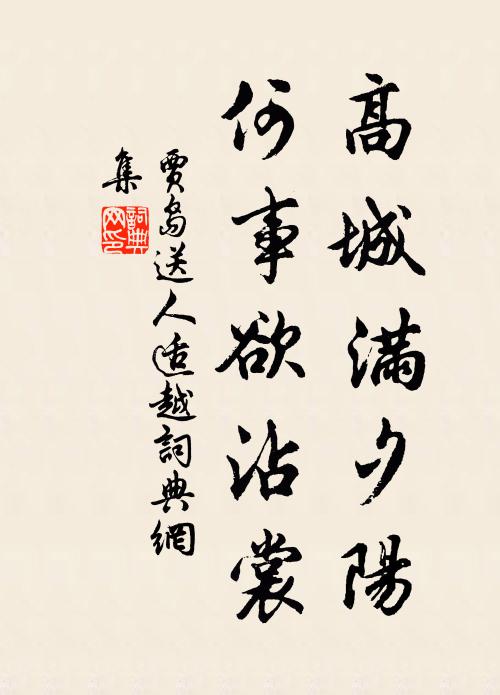 高城滿夕陽
何事欲沾裳
賈島送人適越詞典網
集
詞典網印